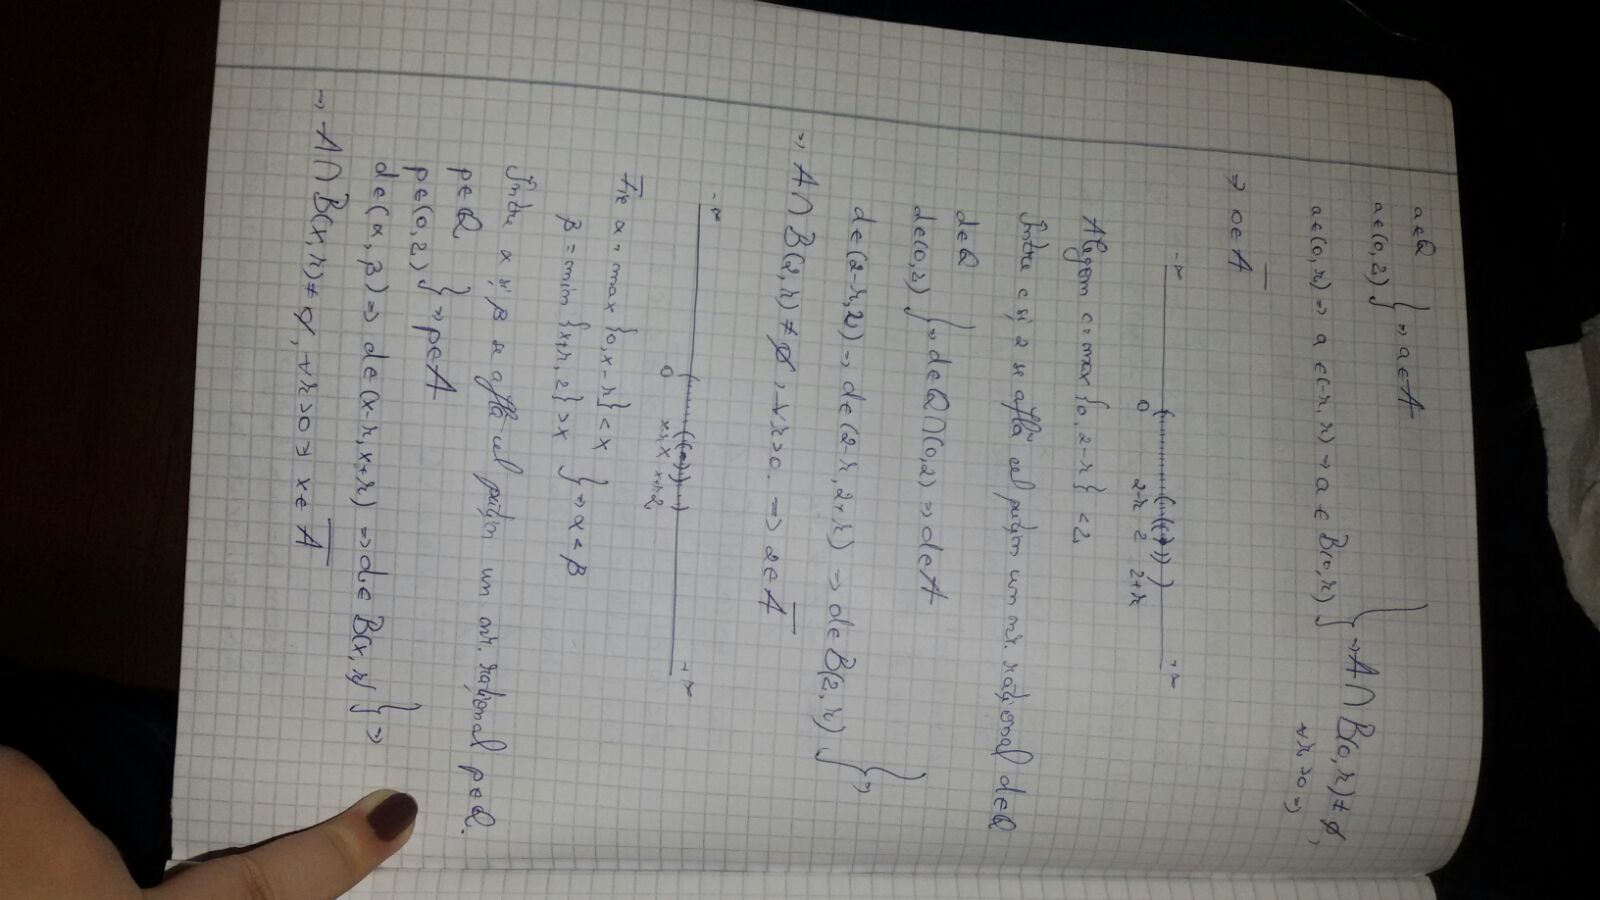 a∈Q
a∈(0,2) } ⇒ a∈A
a∈(0,r) ⇒ a∈(-r,r) ⇒ a∈B(0,r) } ⇒ A∩B(0,r)≠∅,
∀r>0 ⇒)
⇒ 0∈A̅
-∞ 0 2-r 2 2+r +∞
Alegem c=max{0,2-r}<2
Între c și 2 se află cel puțin un nr. rațional d∈Q
d∈Q
d∈(0,2) } ⇒ d∈Q∩(0,2) ⇒ d∈A
d∈(2-r,2) ⇒ d∈(2-r,2+r) ⇒ d∈B(2,r) } ⇒
⇒ A∩B(2,r)≠∅, ∀r>0. ⇒ 2∈A̅
-∞ 0 x-r x x+r 2 +∞
Fie α=max{0,x-r}<x
β=min{x+r,2}>x } ⇒ α<β
Între α și β se află cel puțin un nr. rațional p∈Q.
p∈Q
p∈(0,2) } ⇒ p∈A
d∈(α,β) ⇒ d∈(x-r,x+r) ⇒ d∈B(x,r) } ⇒
⇒ A∩B(x,r)≠∅, ∀r>0 ⇒ x∈A̅